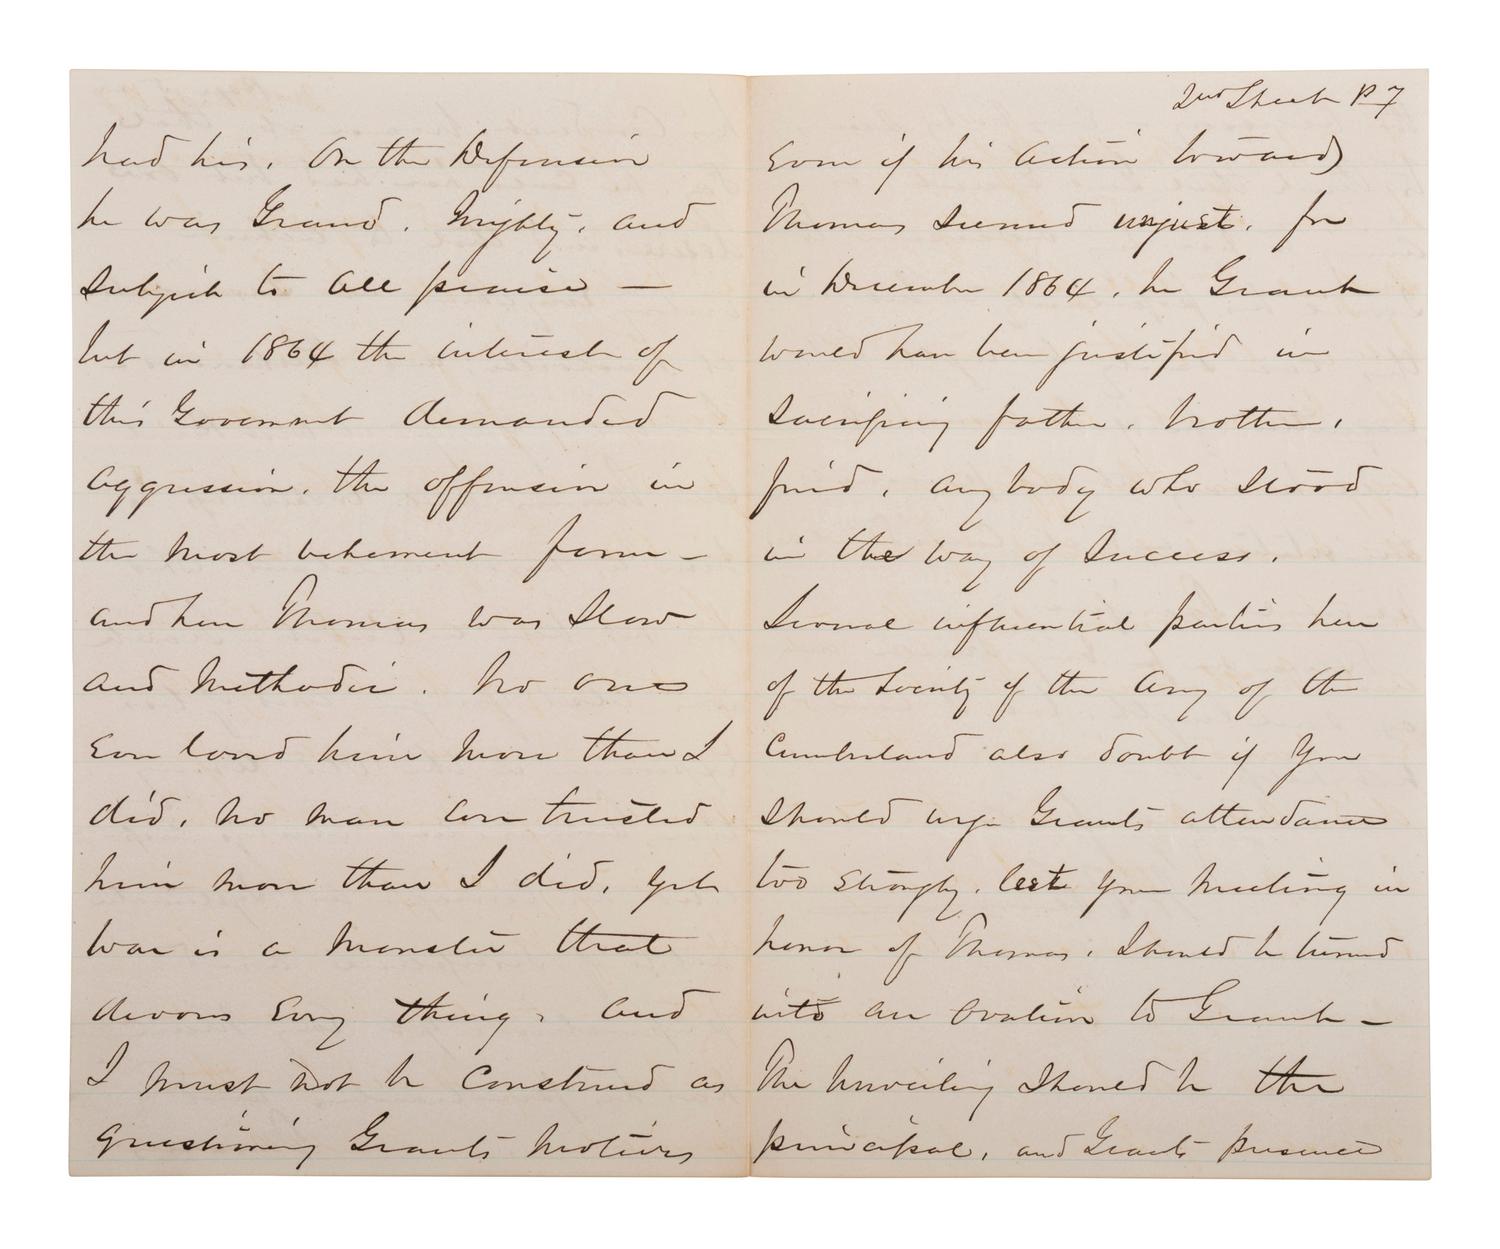 had his. On the Defensive
he was Grand, Mighty, and
subject to all praise —
but in 1864 the interests of
this Government demanded
aggression, the offensive in
the most vehement form —
and here Thomas was Slow
and Methodic. No one
Ever loved him more than I
did, no man ever trusted
him more than I did, yet
War is a monster that
devours Every thing, and
I must not be construed as
questioning Grants motives
2nd Sheet P 7
Even if his action towards
Thomas seemed unjust, for
in December 1864, he Grant
would have been justified in
sacrificing father, brother,
friend, anybody who stood
in the way of Success.
Several influential parties here
of the Society of the Army of the
Cumberland also doubt if you
should urge Grants attendance
too strongly, lest your meeting in
honor of Thomas, should be turned
into an ovation to Grant —
The Unveiling should be the
principal, and Grants presence